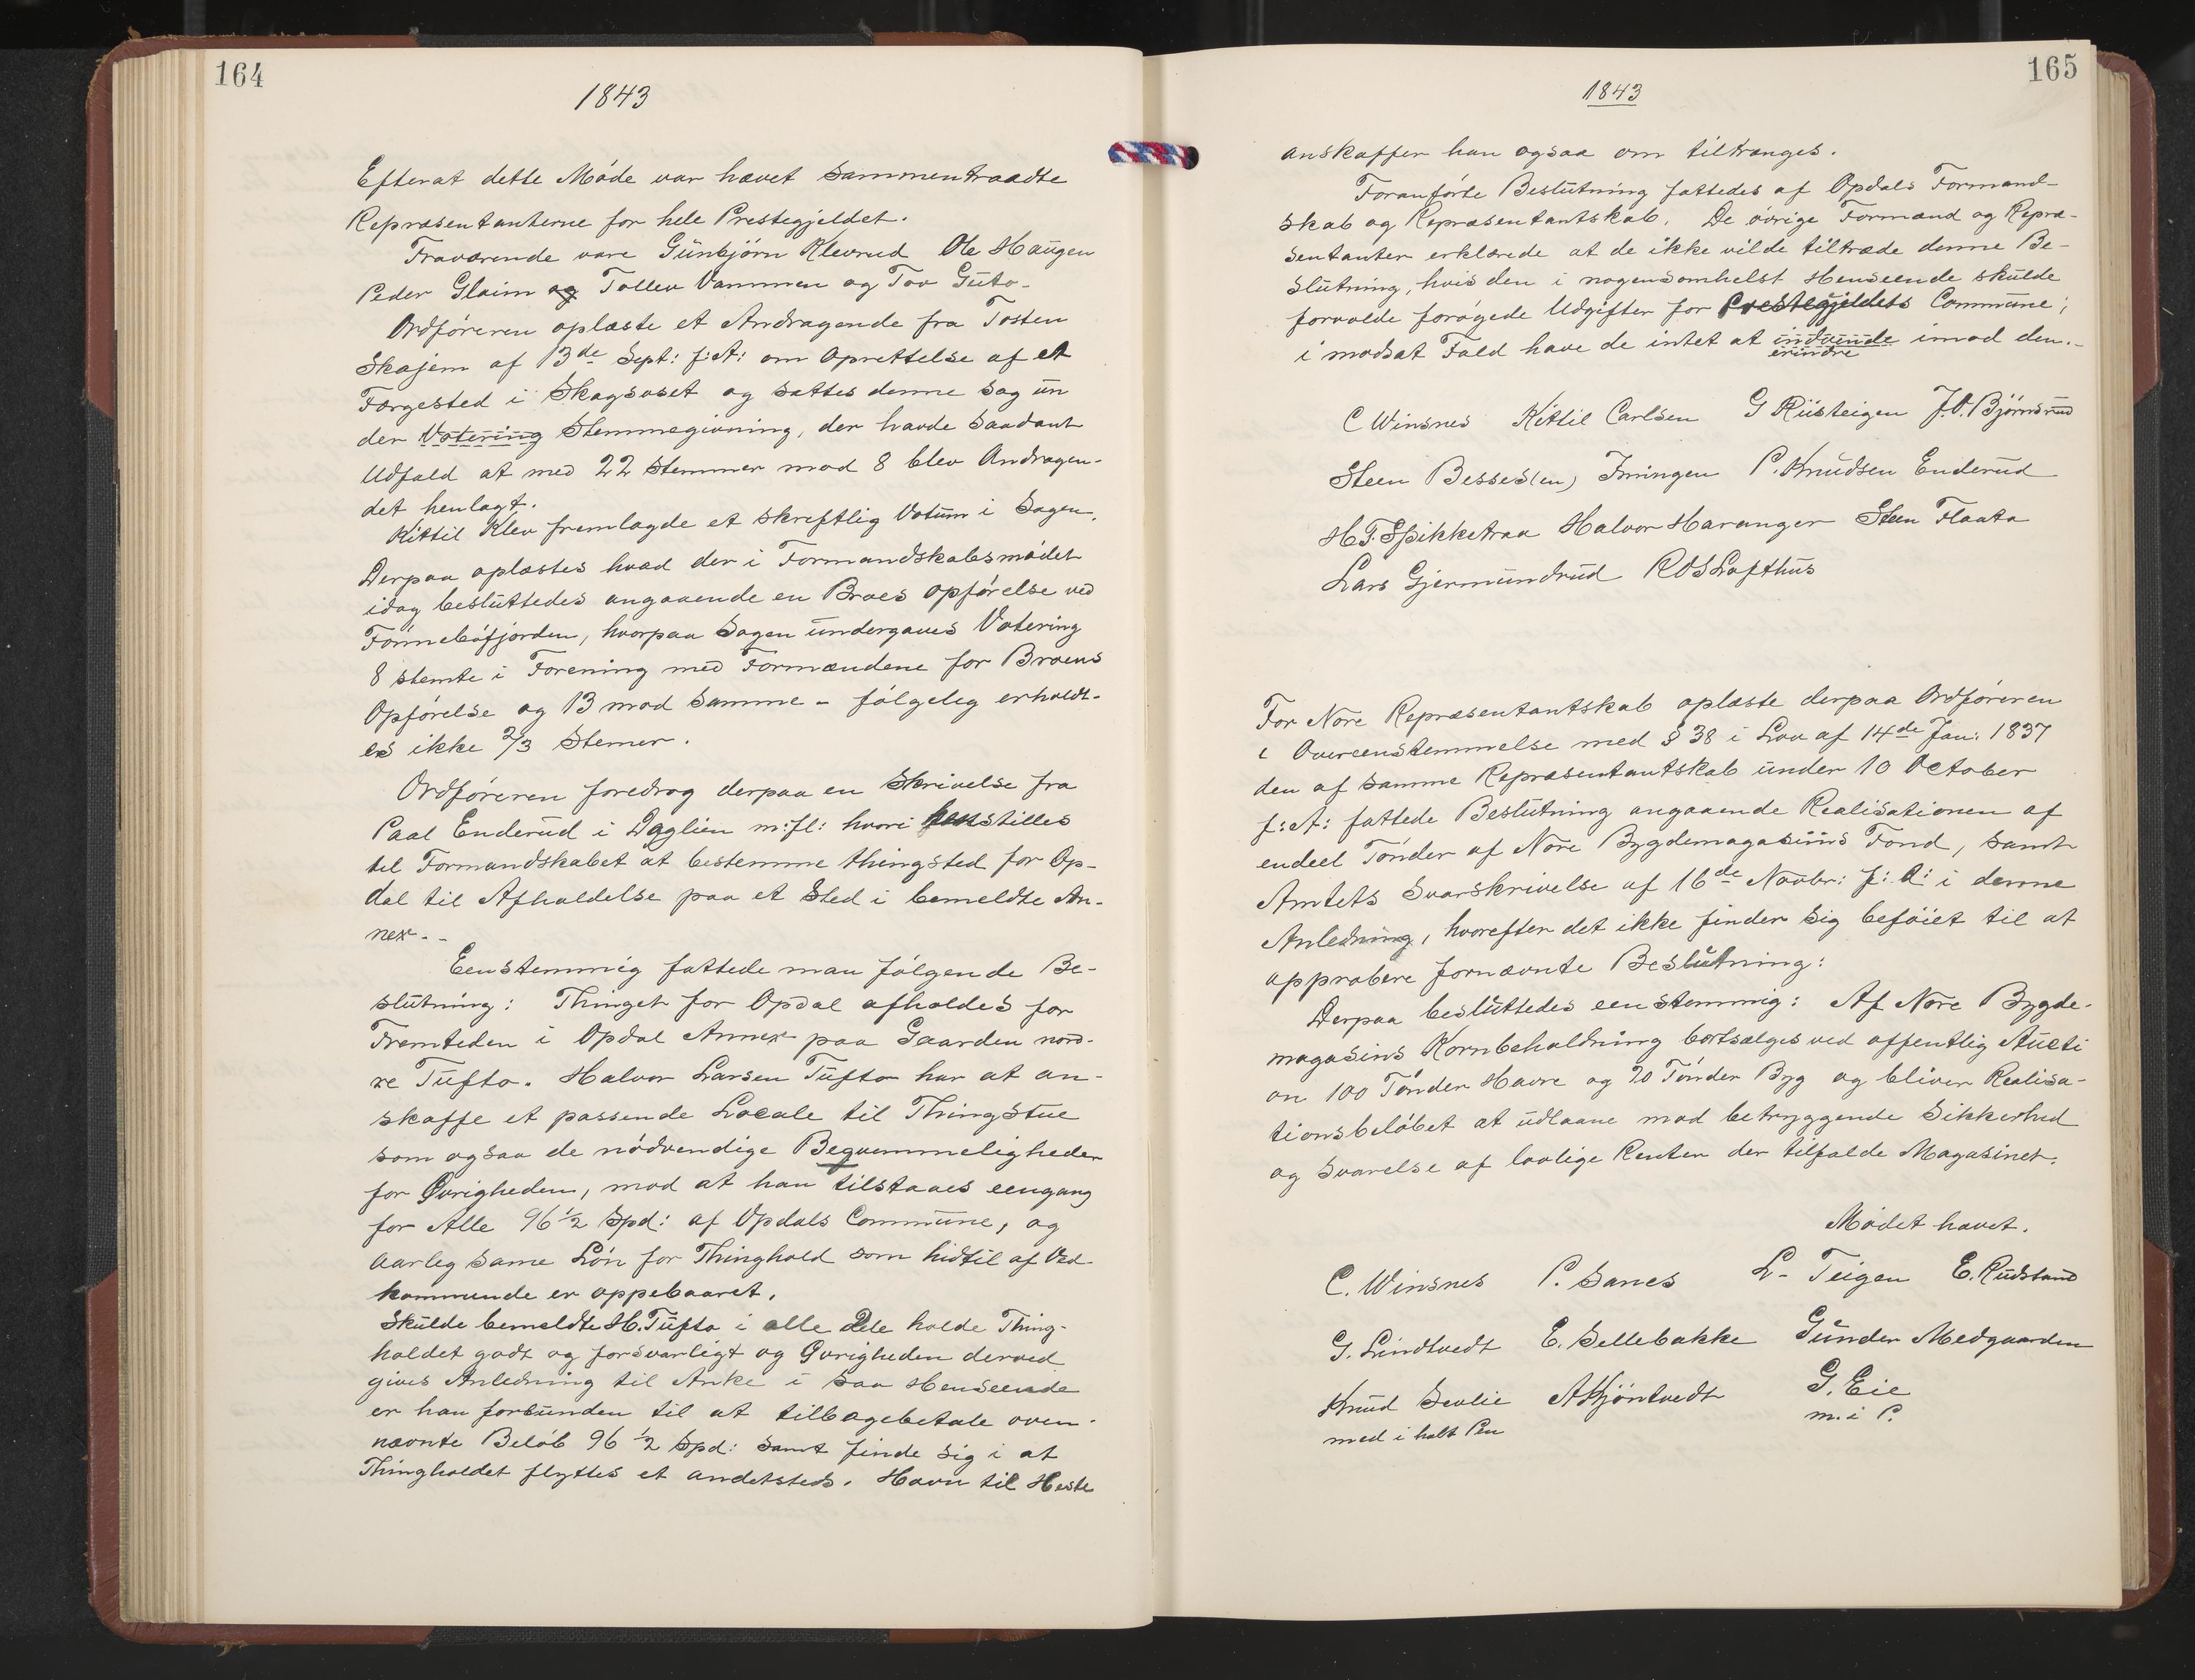 164
1843
Efterat dette Møde var hævet sammentraadte
Repræsentanterne for hele Prestegjeldet.
Fraværende vare Günbjørn Klevrud Ole Haugen
Peder Glaim og Tollev Vammen og Tov Guto-
Ordføreren oplæste et Andragende fra Tosten
Skajem af 13de Sept: f:A: om Oprettelse af et
Færgested i Skagsoset og sattes denne Sag un
der Votering Stemmegivning, der havde saadant
Udfald at med 22 Stemmer mod 8 blev Andragen-
det henlagt.
Kittil Klev fremlagde et skreftlig Votum i Sagen.
Derpaa oplæstes hvad der i Formandskabsmødet
idag besluttedes angaaende en Broes opførelse ved
Fønnebøfjorden, hvorpaa Sagen undergaves Votering
8 stemte i Forening med Formændene for Broens
Opførelse og 13 mod Samme - følgelig erholdt-
es ikke 2/3 Stemer.
Ordføreren foredrog derpaa en Skrivelse fra
Paal Enderud i Dagalien m:fl: hvori henstilles
til Formandskabet at bestemme thingsted for Op-
dal til Afholdelse paa et Sted i bemeldte An-
nex. -
Eenstemmig fattede man følgende Be-
slutning: Thinget for Opdal afholdes for
Fremtiden i Opdal Annex paa Gaarden nord-
re Tufto. Halvor Larsen Tufto har at an-
skaffe et passende Locale til Thingstue
som ogsaa de nødvendige Beqvemmeligheder
for Øvrigheden, mod at han tilstaaes eengang
for Alle 96 1/2 Spd: af Opdals Commune, og
aarleg same Løn for Thinghold som hidtil af Ved-
kommende er oppebaaret.
Skulde bemeldte H. Tufto i alle Dele holde Thing-
holdet godt og forsvarligt og Øvrigheden derved
gives Anledning til Anke i saa Henseende
er han forbunden til at tilbagebetale oven-
nævnte Beløb 96 1/2 Spd: samt finde sig i at
Thingholdet flyttes et andetsteds. Havn til Heste
165
1843
anskaffer han ogsaa om tiltrænges.
Foranførte Beslutning fattedes af Opdals Formand-
skab og Repræsentantskab. De øvrige Formænd og Repræ-
sentanter erklærede at de ikke vilde tiltræde denne Be-
slutning, hvis den i nogensomhelst Henseende skulde
forvolde forøgede Udgifter for Prestegjeldets Commune;
i modsat Fald have de intet at indvende imod den.-
erindre
C Winsnes Kittil Carlsen G Rusteigen J.O. Bjørnsrud
Steen Besses(en) Imingen P. Knudsen Enderud
H T. Spikketraa Halvor Haranger Steen Flaata
Lars Gjermundrud R O S Lofthus
For Nore Repræsentantskab oplæste derpaa Ordføreren
i Overeenstemmelse med § 38 i Lov af 14de Jan: 1837
den af samme Repræsentantskab under 10 October
f:A: fattede Beslutning angaaende Realisationen af
endeel Tønder af Nore Bygdemagasins Fond, samt
Amtets Svarskrivelse af 16de Novbr: f: A: i denne
Anledning, hvorefter det ikke finder sig beføiet til at
approbere fornævnte Beslutning:
Derpaa besluttedes eenstemmig: Af Nore Bygde-
magasins Kornbeholdning bortsælges ved offentlig Aucti
on 100 Tønder Havre og 20 Tønder Byg og bliver Realisa-
tionsbeløbet at udlaane mod betryggende Sikkerhed
og svarelse af lovlige Renter der tilfalde Magasinet.
Mødet hævet.
C. Winsnes P. Sanes L- Teigen E. Rudstand
G. Lindtvedt E. Sellebakke Gunder Medgaarden
Knud Sevlie A Kjøntvedt G. Eie
med i holt Pen m. i P.